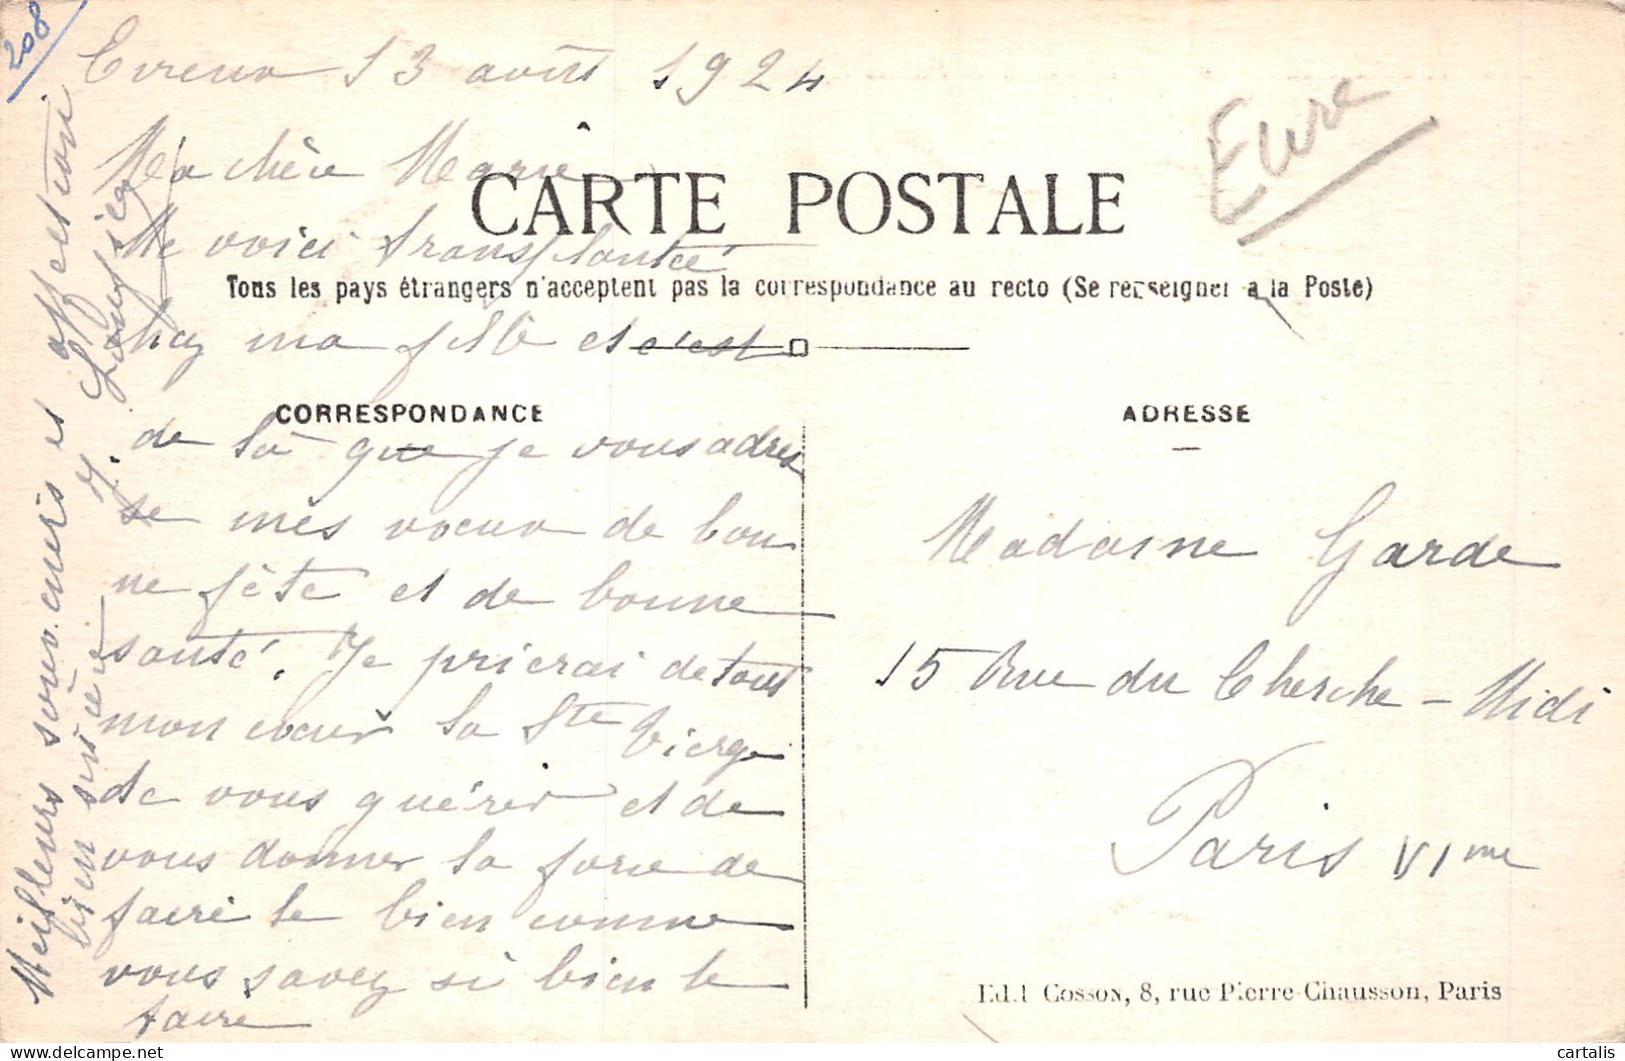 208
Evreux 13 août 1924
Eure
Ma chère Marie
CARTE POSTALE
Me voici transplantée
Tous les pays étrangers n'acceptent pas la correspondance au recto (Se renseigner a la Poste)
chez ma fille et c'est
CORRESPONDANCE
ADRESSE
de là que je vous adres
se mes voeux de bon
ne fête et de bonne
santé. Je prierai de tout
mon coeur la Ste Vierge
de vous guérir et de
vous donner la force de
faire le bien comme
vous savez si bien le
faire
Meilleurs souvenirs et affection
bien sincère
Madame Garde
15 Rue du Cherche-Midi
Paris VIme
Edit Cosson, 8, rue Pierre-Chausson, Paris
cartalis